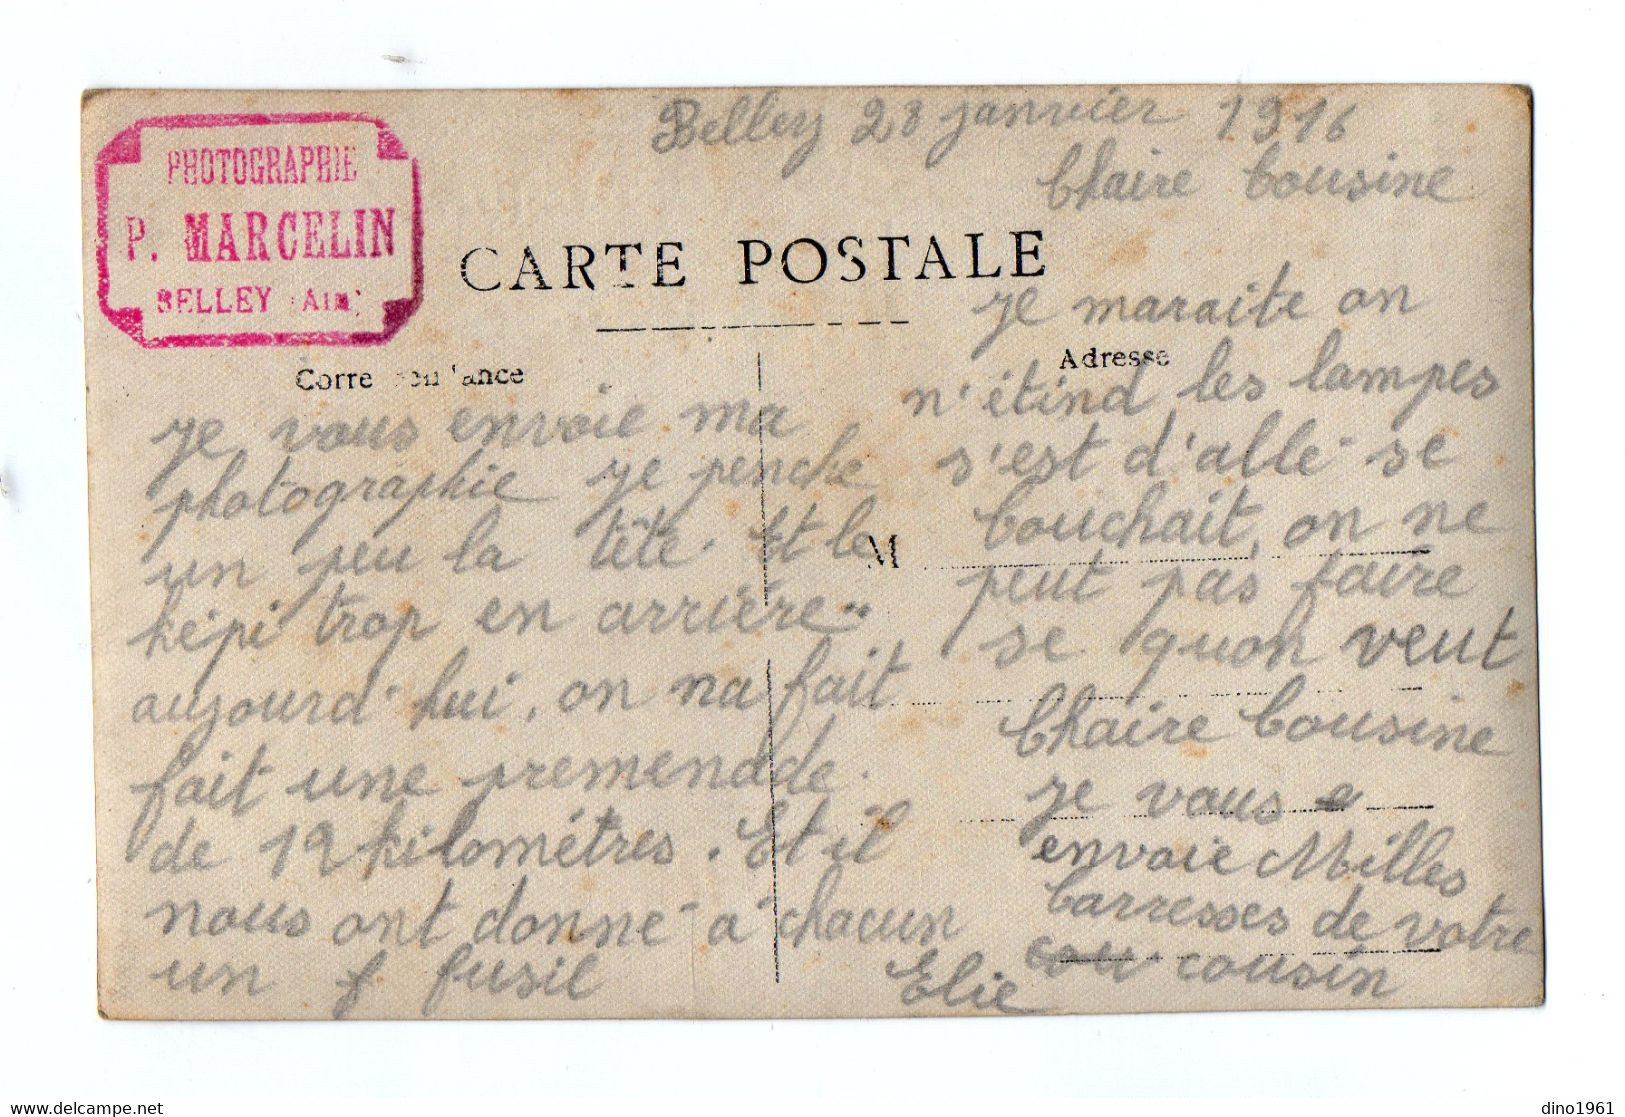 PHOTOGRAPHIE
P. MARCELIN
BELLEY (Ain)
Belley 28 janvier 1916
Chaire Cousine
CARTE POSTALE
Corre ance
je vous envoie ma
photographie je penche
un peu la tête. Et le
képi trop en arrière..
aujourd'hui, on na fait
fait une premenadde.
de 12 kilométres. Et il
nous ont donné a chacun
un f fusil
Adresse
M
je maraite on
n'étind les lampes
s'est d'allé se
couchait, on ne
peut pas faire
se quon veut
Chaire Cousine
je vous e
envoie Milles
Carresses de votre
cou cousin
Elie
dino1961